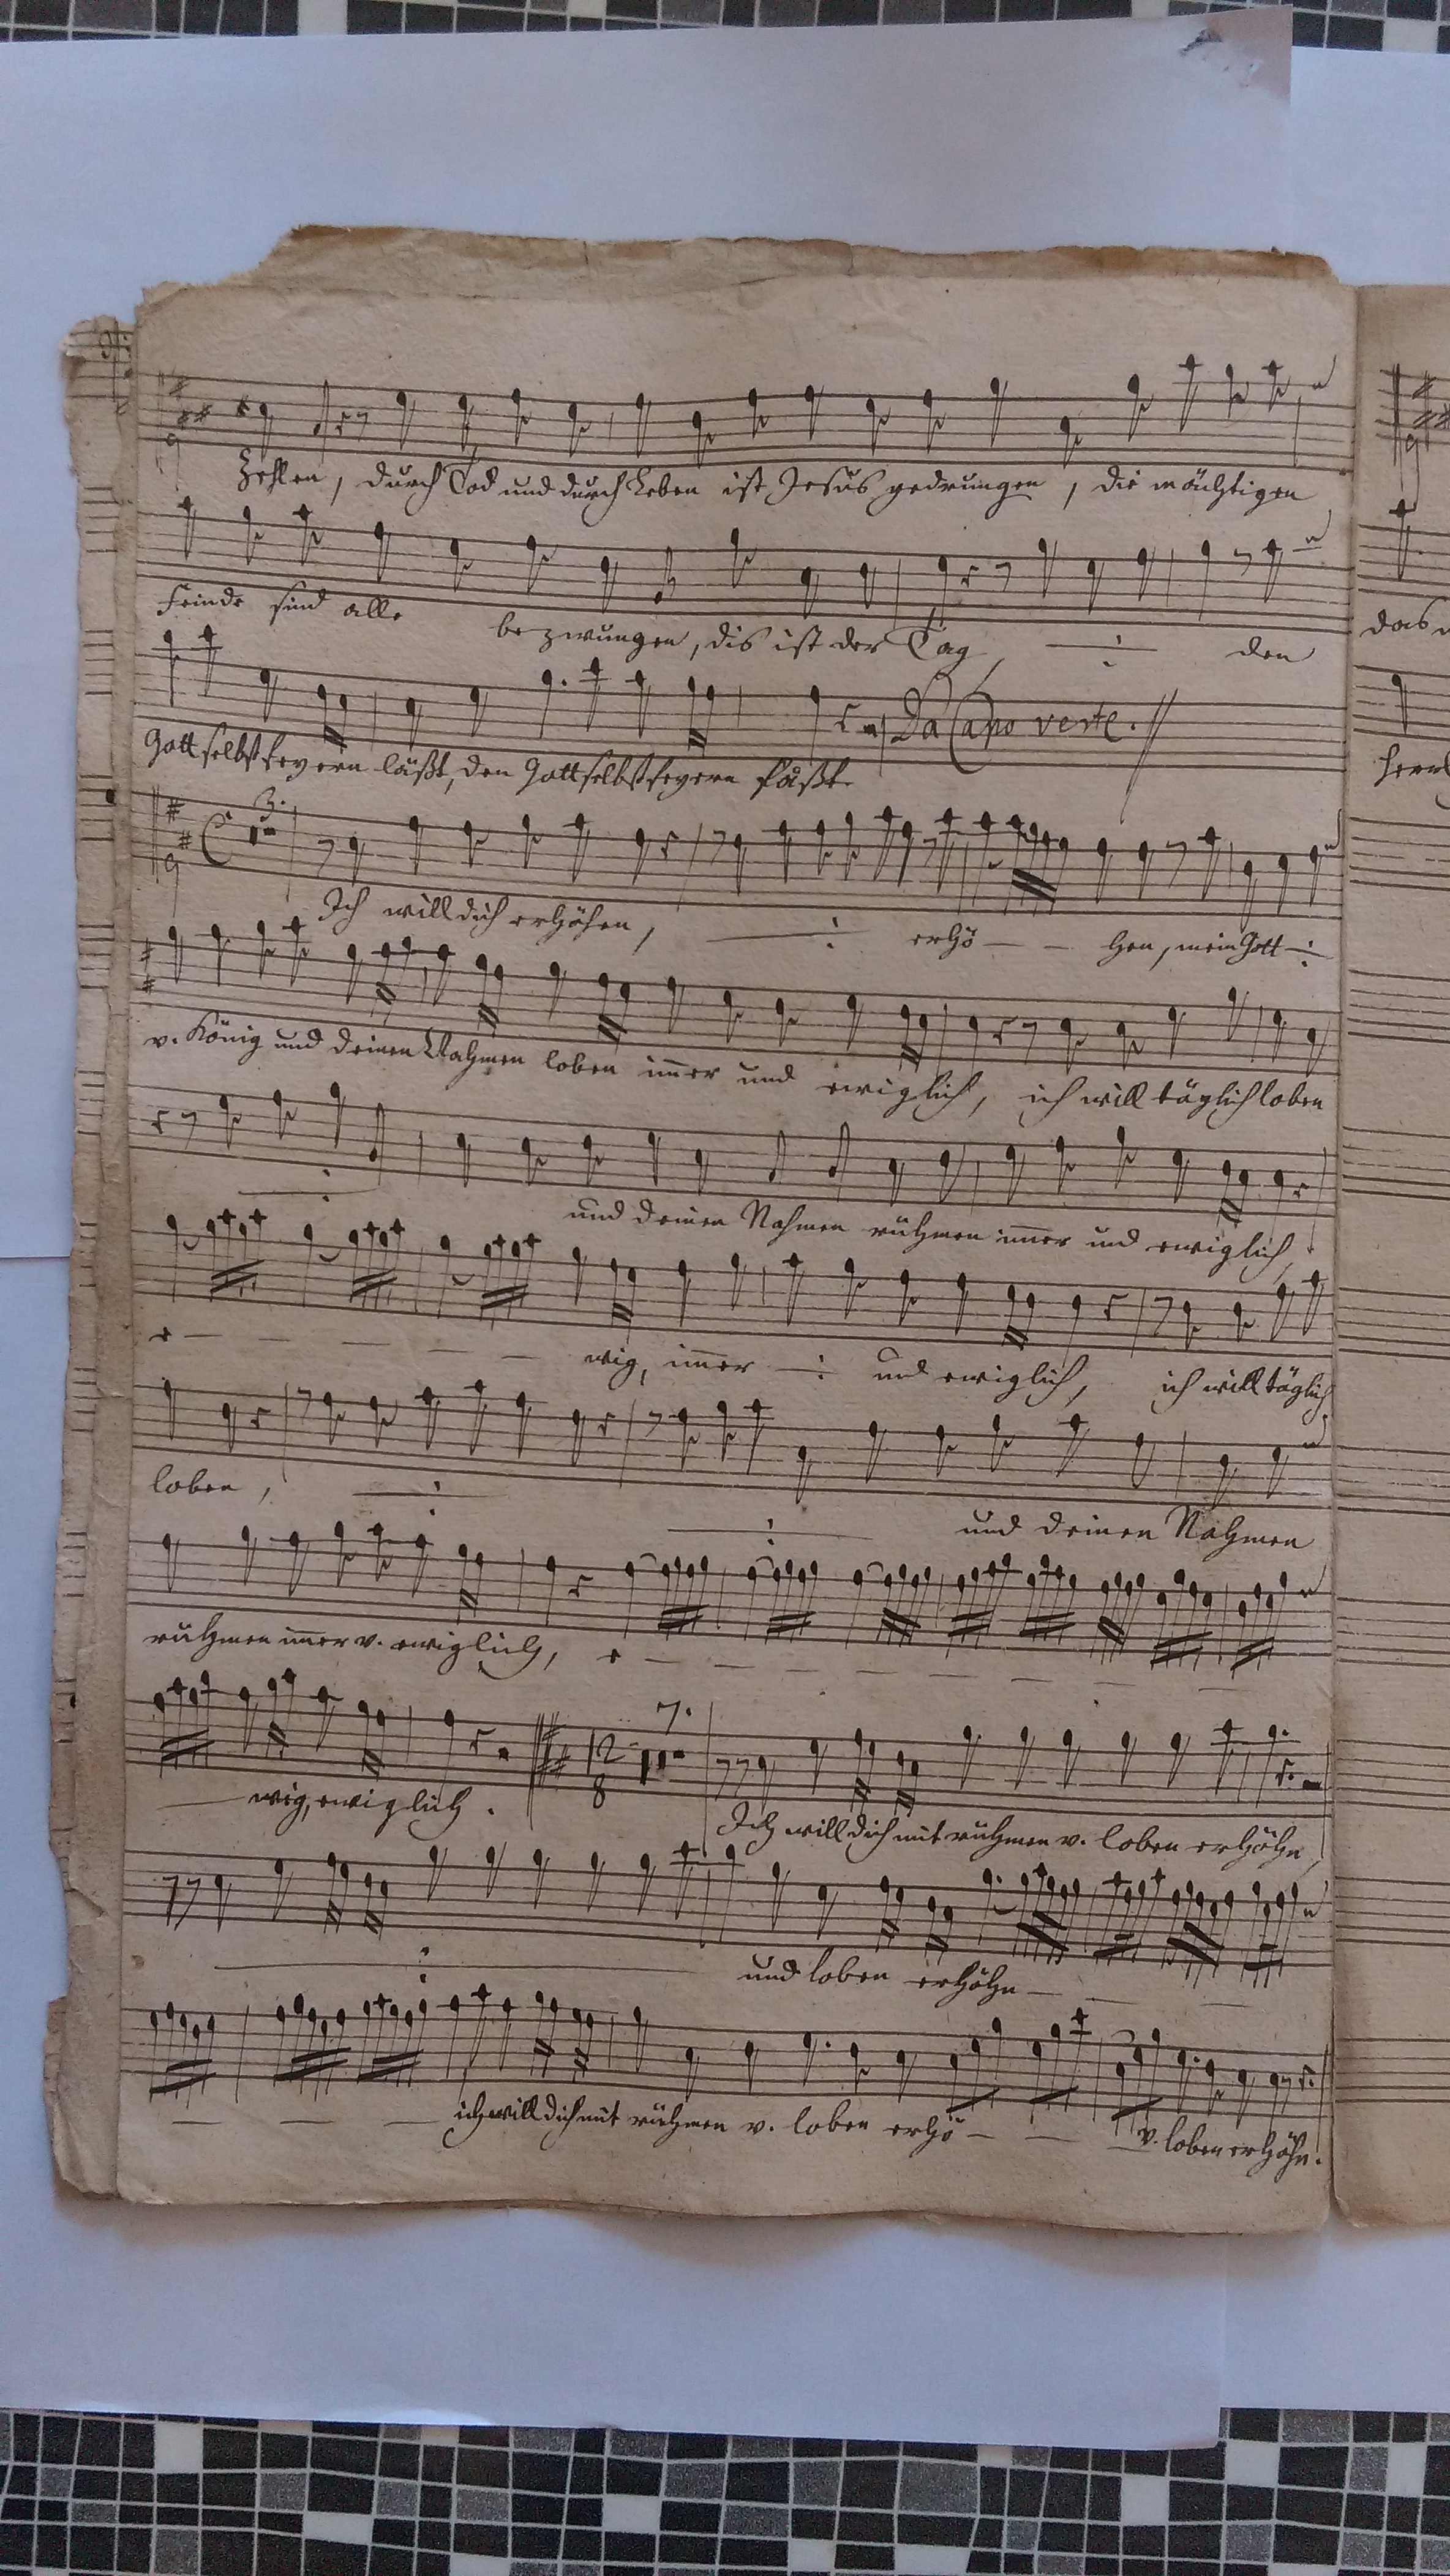 zehlen, durch Tod und durch Leben ist Jesus gedrungen, die mächtigen
Feinde sind alle bezwungen, dis ist der Tag, den
Gott selbst feyern läßt, den Gott selbst feyern läßt.
Da Capo verte.
3.
Ich will dich erhöhen, erhö - - hen, mein Gott
v. König und deinen Nahmen loben immer und ewiglich, ich will täglich loben
und deinen Nahmen rühmen immer und ewiglich,
e - - - - - wig, immer und ewiglich, ich will täglich
loben, und deinen Nahmen
rühmen immer v. ewiglich, e - - - - - - -
7.
12
8
wig, ewiglich.
Ich will dich mit rühmen v. loben erhöhn,
und loben erhöhn - - -
- - - ich will dich mit rühmen v. loben erhö - - - v. loben erhöhn.
das